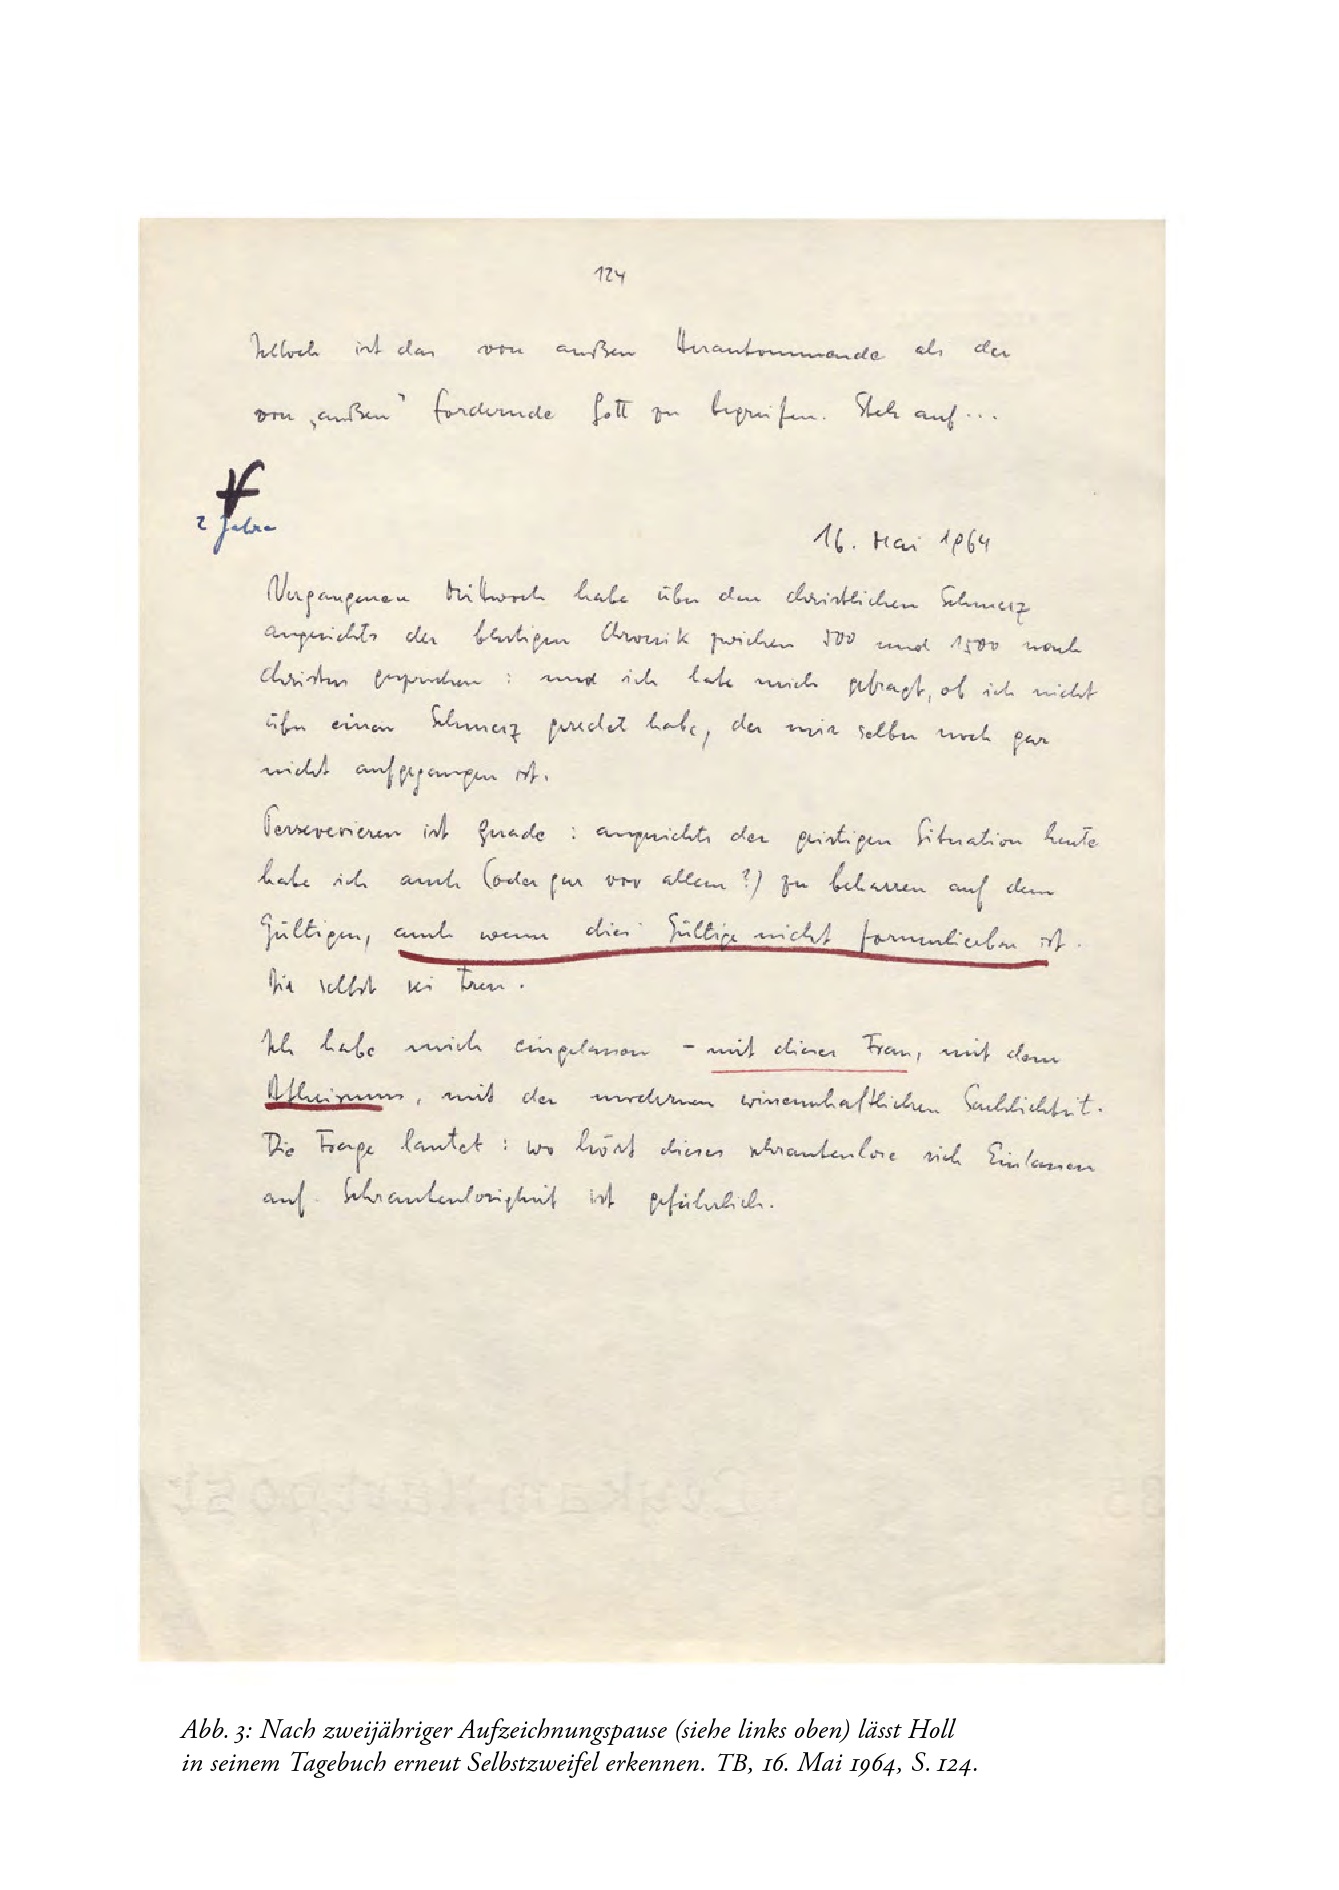 124
Jedoch ist das von außen Herankommende als der
von „außen" fordernde Gott zu begreifen. Steh auf...
2 Jahre
16. Mai 1964
Vergangenen Mittwoch habe über den christlichen Schmerz
angesichts der blutigen Chronik zwischen 500 und 1500 nach
Christus gesprochen : und ich habe mich gefragt, ob ich nicht
über einen Schmerz geredet habe, der mir selber noch gar
nicht aufgegangen ist.
Perseverieren ist Gnade : angesichts der geistigen Situation heute
habe ich auch (oder gar vor allem ?) zu beharren auf dem
Gültigen, auch wenn dies Gültige nicht formulierbar ist.
Dir selbst sei treu.
Ich habe mich eingelassen – mit dieser Frau, mit dem
Atheismus, mit der modernen wissenschaftlichen Sachlichkeit.
Die Frage lautet : wo hört dieses schrankenlose sich Einlassen
auf. Schrankenlosigkeit ist gefährlich.
Leykam Hartpost
Abb. 3: Nach zweijähriger Aufzeichnungspause (siehe links oben) lässt Holl
in seinem Tagebuch erneut Selbstzweifel erkennen. TB, 16. Mai 1964, S. 124.